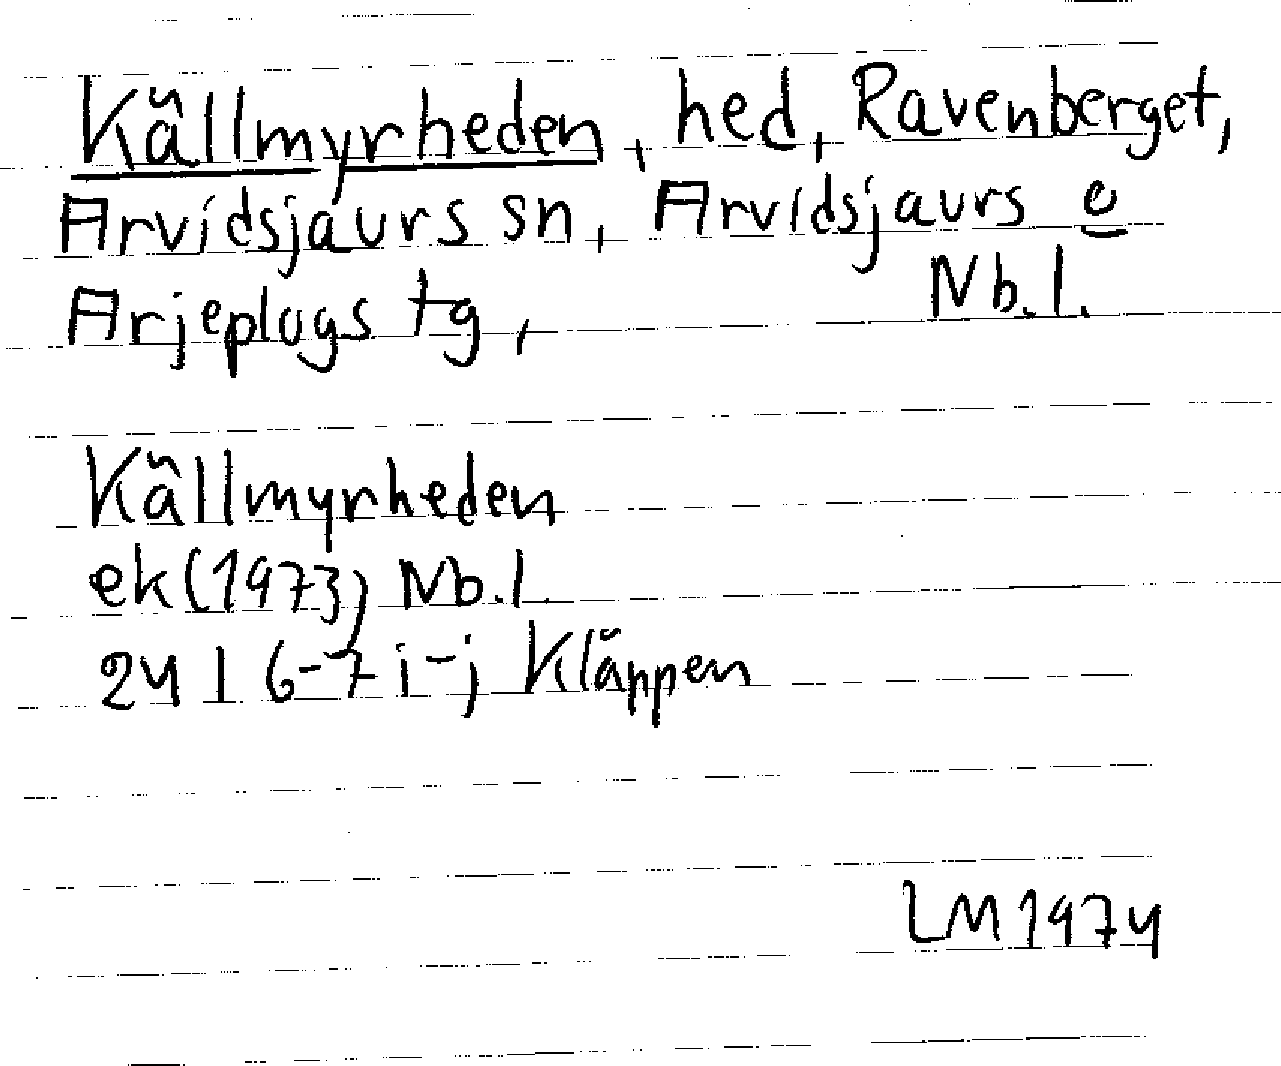 Källmyrheden, hed, Ravenberget,
Arvidsjaurs sn, Arvidsjaurs o
Arjeplogs tg, Nb.l.
Källmyrheden
ek (1973) Nb.l.
24 I 6-7 i-j Kläppen
LM 1974